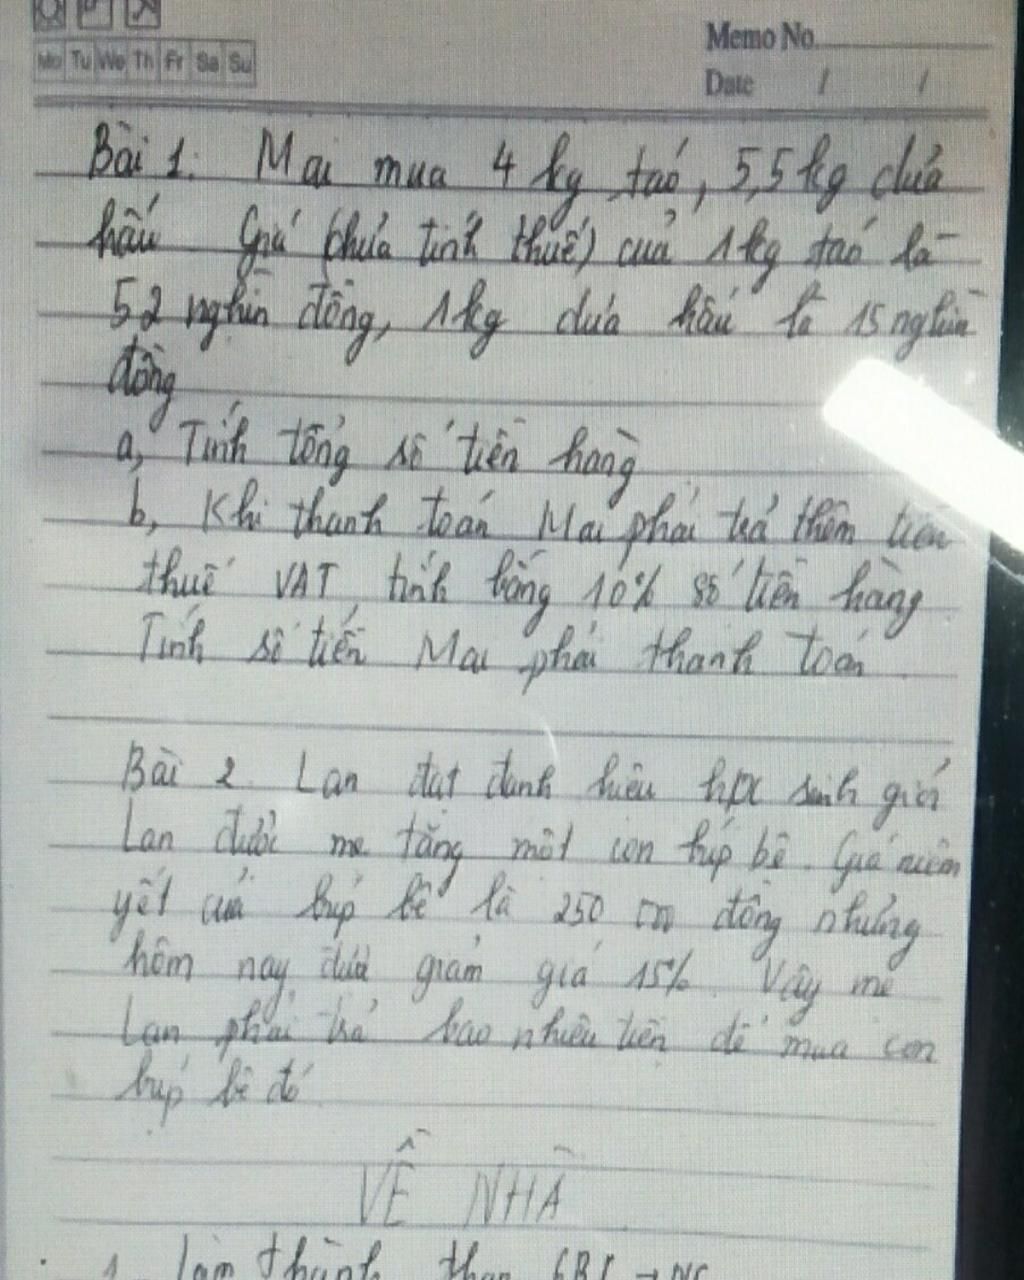 Memo No.
Mo Tu We Th Fr Sa Su
Date / /
Bài 1. Mai mua 4 kg táo, 5,5 kg dưa
hấu Giá (chưa tính thuế) của 1kg táo là
52 nghìn đồng, 1kg dưa hấu là 15 nghìn
đồng
a, Tính tổng số tiền hàng
b, Khi thanh toán Mai phải trả thêm tiền
thuế VAT tính bằng 10% số tiền hàng
Tính số tiền Mai phải thanh toán
Bài 2. Lan đạt danh hiệu học sinh giỏi
Lan được mẹ tặng một con búp bê. Giá niêm
yết của búp bê là 250 000 đồng nhưng
hôm nay được giảm giá 15%. Vậy mẹ
Lan phải trả bao nhiêu tiền để mua con
búp bê đó
VỀ NHÀ
1. Làm thành